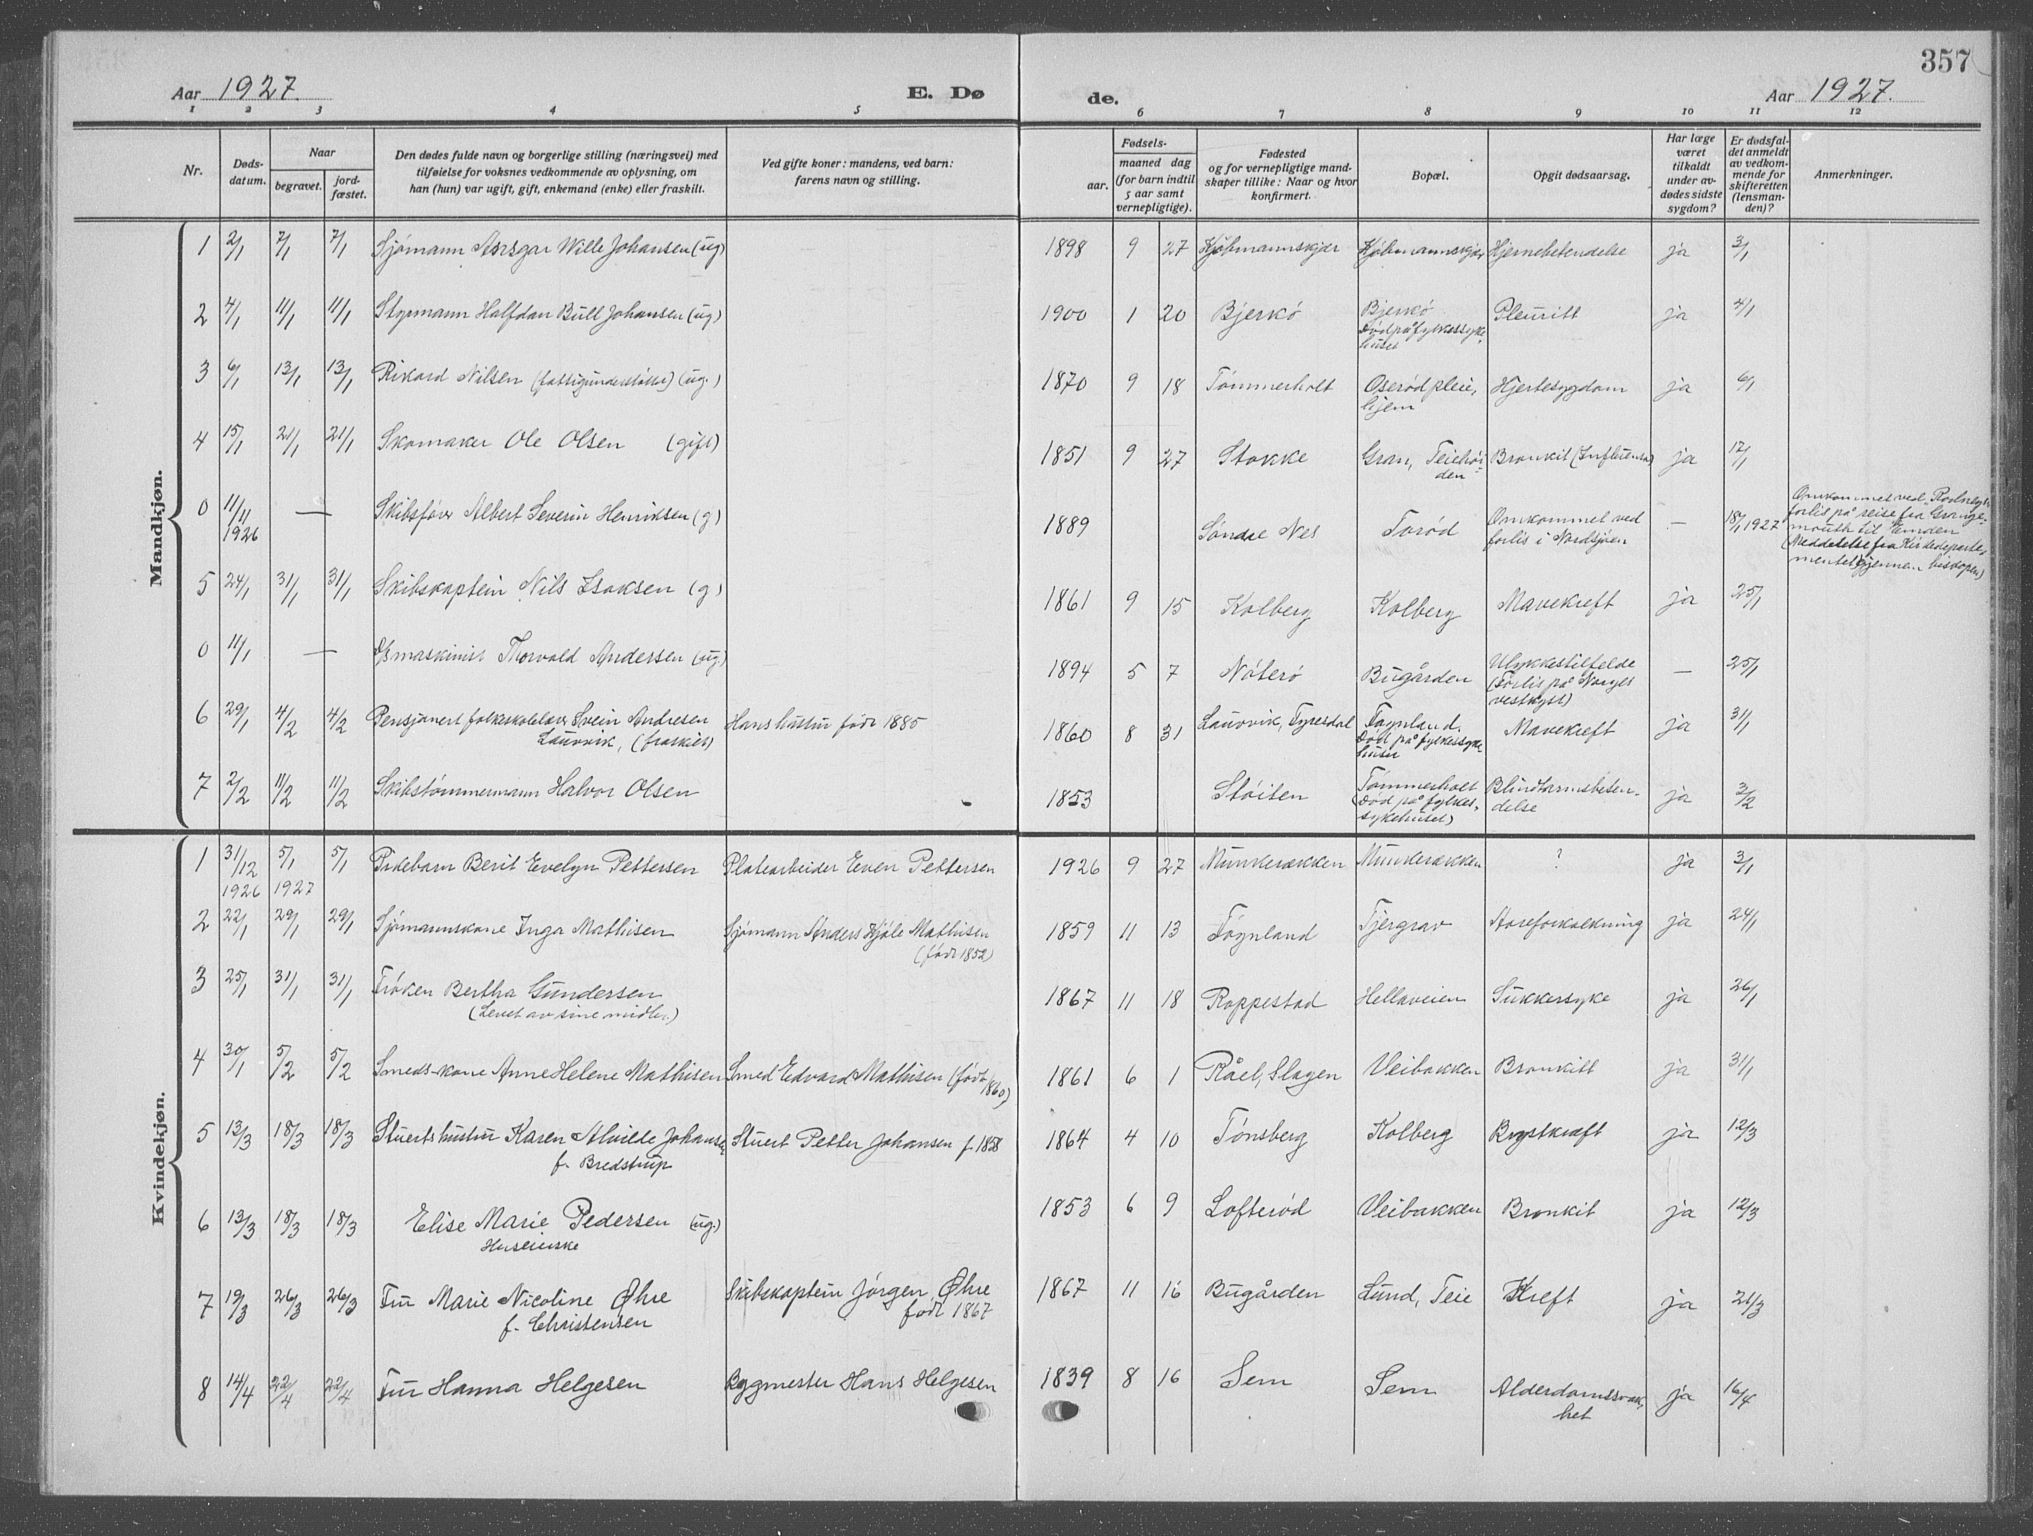 357
Aar 1927. E. Dø de. Aar 1927.
1 2 3 4 5 6 7 8 9 10 11 12
Nr. Døds-datum. Naar begravet. jord-fæstet. Den dødes fulde navn og borgerlige stilling (næringsvei) med tilføielse for voksnes vedkommende av oplysning, om han (hun) var ugift, gift, enkemand (enke) eller fraskilt. Ved gifte koner: mandens, ved barn: farens navn og stilling. Fødsels- aar. maaned dag (for barn indtil 5 aar samt vernepligtige). Fødested og for vernepligtige mand-skaper tillike: Naar og hvor konfirmert. Bopæl. Opgit dødsaarsag. Har læge været tilkaldt under av-dødes sidste sygdom? Er dødsfal-det anmeldt av vedkom-mende for skifteretten (lensman-den)? Anmerkninger.
Mandkjøn.
1 2/1 7/1 7/1 Sjømann Asrsgar Wille Johansen (ug) 1898 9 27 Kjøbmannskjær Kjøbmannskjær Hjernebetendelse ja 3/1
2 4/1 11/1 11/1 Styrmann Halfdan Bull Johansen (ug) 1900 1 20 Bjerkö Bjerkö Død på fylkessyke-huset Pleuritt ja 4/1
3 6/1 13/1 13/1 Rikard Nilsen (fattigunderstötte) (ug.) 1870 9 18 Tømmerholt Oserød pleie-hjem Hjertesygdom ja 6/1
4 15/1 21/1 21/1 Skomaker Ole Olsen (gift) 1851 9 27 Stokke Gran, Teiehöi-den Bronkit (Influensa) ja 17/1
0 11/11 1926 — Skibsfører Albert Severin Henriksen (g) 1889 Søndre Nes Torød Omkommet ved forlis i Nordsjøen — 18/1 1927 Omkommet ved forlis på reise fra Grange-mouth til Emden (Meddelelse fra Kirkedeparte-mentet gjennem biskopen)
5 24/1 31/1 31/1 Skibskaptein Nils Isaksen (g) 1861 9 15 Kolberg Kolberg Mavekreft ja 25/1
0 11/1 — maskinist Thorvald Andersen (ug.) 1894 5 7 Nöterö Bugården Ulykkestilfelde (Forlis på Norges vestkyst) — 25/1
6 29/1 4/2 4/2 Pensjonert folkeskolelærer Svein Andresen Lauvvik, (fraskilt) Hans hustru født 1885 1860 8 31 Lauvvik, Fyresdal Føynland. Død på fylkessyke huset Mavekreft ja 31/1
7 2/2 11/2 11/2 Skibstømmermann Halvor Olsen 1853 Støiten Tømmerholt (Død på fylkes-sykehuset) Blindtarmsbeten-delse ja 3/2
Kvindekjøn.
1 31/12 1926 5/1 1927 5/1 Pikebarn Berit Evelyn Pettersen Platearbeider Even Pettersen 1926 9 27 Munkerekken Munkerekken ? ja 3/1
2 22/1 29/1 29/1 Sjømannskone Inga Mathisen Sjømann Anders Hjöle Mathisen (født 1852) 1859 11 13 Føynland Tjergrav Aareforkalkning ja 24/1
3 25/1 31/1 31/1 Frøken Bertha Gundersen (Levet av sine midler.) 1867 11 18 Roppestad Hellaveien Sukkersyke ja 26/1
4 30/1 5/2 5/2 Smeds-kone Anne Helene Mathisen Smed Edvard Mathisen (født 1860) 1861 6 1 Råel, Slagen Veibakken Bronkitt ja 31/1
5 13/3 18/3 18/3 Stuerts hustru Karen Alvilde Johansen f. Bredstrup Stuert Petter Johansen f 1858 1864 4 10 Tønsberg Kolberg Brystkræft ja 12/3
6 13/3 18/3 18/3 Elise Marie Pedersen (ug.) Huseierske 1853 6 9 Lofterød Veibakken Bronkit ja 12/3
7 19/3 26/3 26/3 Fru Marie Nicoline Øhre f. Christensen Skibskaptein Jørgen Øhre født 1867 1867 11 16 Bugården Lund, Teie Kreft ja 21/3
8 14/4 22/4 22/4 Fru Hanna Helgesen Bygmester Hans Helgesen 1839 8 16 Sem Sem Alderdomssvak-het ja 16/4